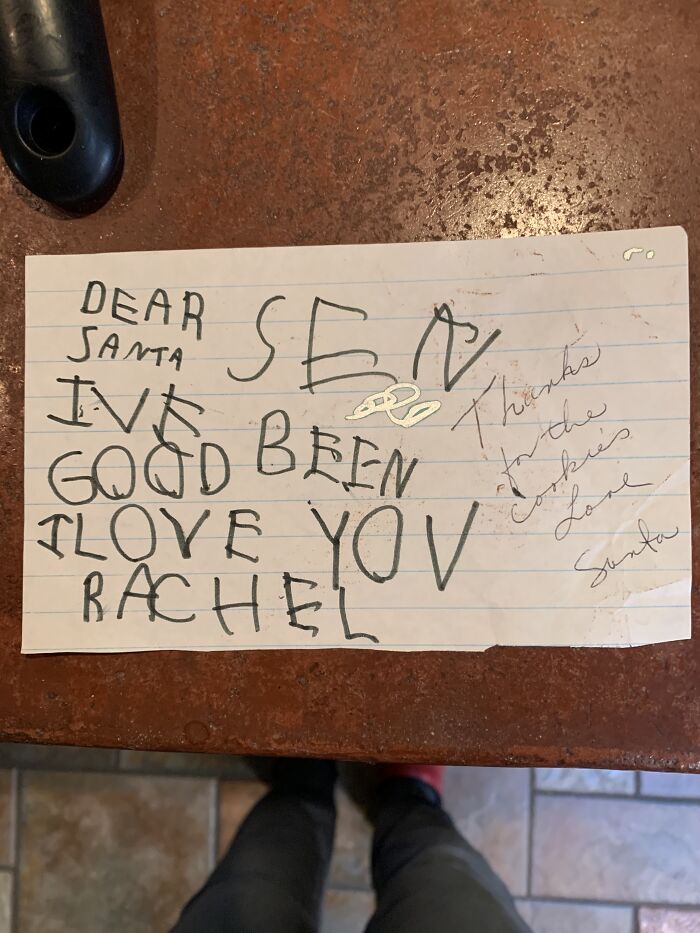 DEAR
SANTA
SEN
I'VE
GOOD BEEN
I LOVE YOU
RACHEL
Thanks
for the
cookies
Love
Santa